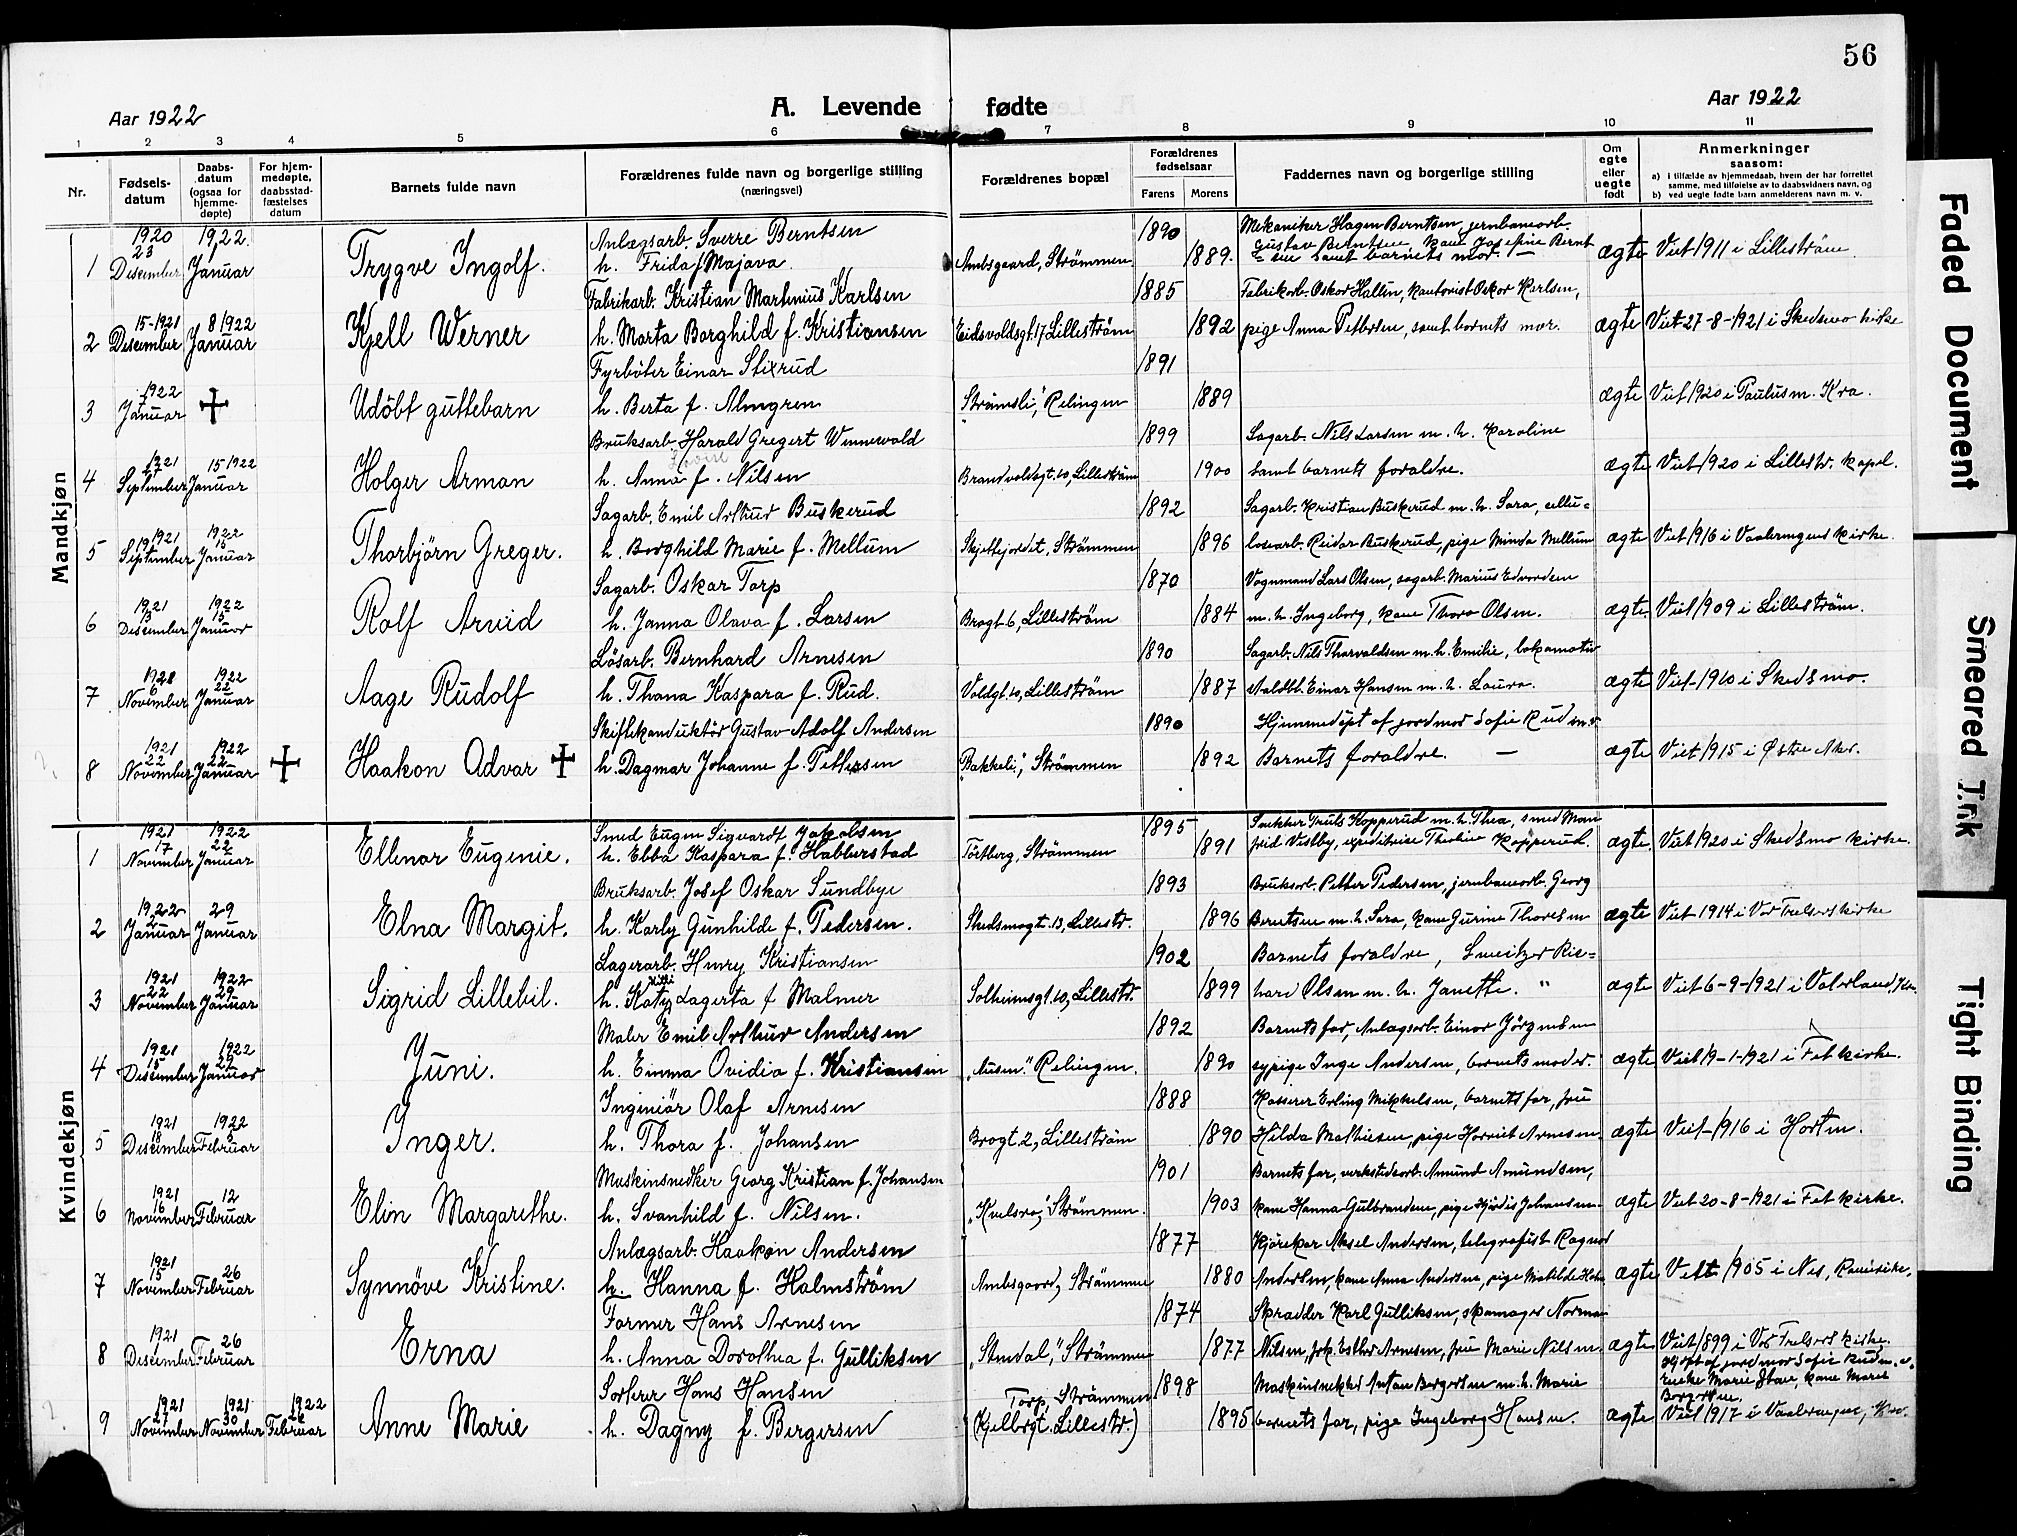 56
Aar 1922
A. Levende fødte
Aar 1922
1 2 3 4 5 6 7 8 9 10 11
Nr.
Fødsels-
datum
Daabs-
datum
(ogsaa for
hjemme-
døpte)
For hjem-
medøpte,
daabsstad-
fæstelses
datum
Barnets fulde navn
Forældrenes fulde navn og borgerlige stilling
(næringsvei)
Forældrenes bopæl
Forældrenes
fødselsaar
Farens Morens
Faddernes navn og borgerlige stilling
Om
egte
eller
uegte
født
Anmerkninger
saasom:
a) i tilfælde av hjemmedaab, hvem der har forrettet
samme, med tilføielse av to daabsvidners navn, og
b) ved uegte fødte barn anmelderens navn m. v.
Mandkjøn
1920 1922 Anlægsarb. Sverre Berntsen 1890 Mekaniker Hagen Berntsen, jernbanearb.
23 Gustav Berntsen, kone Josefine Bernt
1 Desember Januar Trygve Ingolf. h. Frida f. Majava. Ambsgaard, Strömmen 1889. sen samt barnets mor. ægte Viet 1911 i Lilleström.
Fabrikarb. Kristian Martinius Karlsen 1885 Fabrikarb. Oskar Hallin, kontorist Oskar Karlsen,
15-1921 8 1922
2 Desember Januar Kjell Werner h. Marta Borghild f. Kristiansen Eidsvoldsgt. 17 Lilleström 1892 pige Anna Pettersen, samt barnets mor. ægte Viet 27-8-1921 i Skedsmo kirke
Fyrböter Einar Stixrud 1891
1922
3 Januar Udöbt guttebarn h. Berta f. Almgren "Strömsli", Relingen 1889 ægte Viet 1920 i Paulus m. Kra.
Bruksarb. Harald Gregert Wennewold 1899 Sagarb. Nils Larsen m. h. Karoline
1921 15 1922
4 September Januar Holger Arman h. Anna f. Nilsen Brandvoldsgt. 10, Lilleström 1900 samt barnets foraldre. ægte Viet 1920 i Lillestr. kapel.
Sagarb. Emil Arthur Buskerud 1892 Sagarb. Kristian Buskerud m. h. Sara, cellu=
19 1921 1922 15
5 September Januar Thorbjörn Greger. h. Borghild Marie f. Mellum Skjettejordet, Strömmen 1896 losearb. Reidar Buskerud, pige Minda Mellum ægte Viet 1916 i Vaalerengens kirke.
Sagarb. Oskar Torp 1870 Vognmand Lars Olsen, sagarb. Marius Edvardsen
1921 1922
13 15
6 Desember Januar Rolf Arvid h. Janna Olava f. Larsen Brogt. 6, Lilleström 1884 m. h. Ingeborg, kone Thora Olsen. ægte Viet 1909 i Lilleström.
Lösarb. Bernhard Arnesen 1890 Sagarb. Nils Thorvaldsen m. h. Emilie, lokomotiv
1921 1922
6 22
7 November Januar Aage Rudolf h. Thana Kaspara f. Rud. Voldgt. 10, Lilleström 1887 Einar Hansen m. h. Laura. ægte Viet 1910 i Skedsmo.
Skiftekonduktör Gustav Adolf Andersen 1890 Hjemmedöpt af jordmor Sofie Rud
1921 1922
22 22
8 November Januar Haakon Advar h. Dagmar Johanne f. Pettersen "Bakkeli", Strömmen 1892 Barnets foraldre. ægte Viet 1915 i Østre Aker.
Kvindekjøn
1921 1922 Smed Eugen Sigvardt Jakobsen 1895 Snekker Truls Kopperud m. h. Thea, smed Man
17 22
1 November Januar Ellenor Eugenie. h. Ebba Kaspara f. Habberstad Törtberg, Strömmen 1891 frid Vestby, expeditrise Kopperud. ægte Viet 1920 i Skedsmo kirke.
Bruksarb. Josef Oskar Sundbye 1893 Bruksarb. Petter Pedersen, jernbanearb. Georg
1922 29
2
2 Januar Januar Elna Margit. h. Karly Gunhilde f. Pedersen. Skedsmogt. 13, Lillestr. 1896 Berntsen m. h. Sara, kone Gurine Thoresen ægte Viet 1914 i Vor Frelsers kirke
Lagerarb. Henry Kristiansen 1902 Barnets foraldre, Sweitzer Rie=
1921 1922
22 29
3 November Januar Sigrid Lillebil. h. Katy Lagerta f Malmer Solheimsgt. 10, Lillestr. 1899 hard Olsen m. h. Janette. " ægte Viet 6-9-1921 i Vaterland,
Maler Emil Arthur Andersen 1892 Barnets far, Anlægsarb. Einar Jörgensen
1921 1922
15 29
4 Desember Januar Juni. h. Emma Ovidia f. Kristiansen "Ausen", Relingen. 1890 sypige Inga Andersen, barnets moder. ægte Viet 19-1-1921 i Fet kirke.
Ingeniör Olaf Arnesen 1888 Kasserer Erling Mikkelsen, barnets far, fru
1921 1922
18
5 Desember Februar Inger. h. Thora f. Johansen Brogt. 2, Lilleström 1890 Hilda Mathiesen, pige Harriet Arnesen. ægte Viet 1916 i Horten.
Maskinsnedker Georg Kristian f. Johansen 1901 Barnets far, verkstedsarb. Amund Amundsen,
1921 12
16
6 November Februar Elin Margarethe. h. Svanhild f. Nilsen. "Kvelsro", Strömmen. 1903 kone Hanna Gulbrandsen, pige Hjördis Johansen. ægte Viet 20-8-1921 i Fet kirke.
Anlægsarb. Haakon Andersen 1877 Kjörekar Aksel Andersen, telegrafist Ragnar
1921
15 26
7 November Februar Synnöve Kristine. h. Hanna f. Holmström Ambsgaard, Strömmen 1880 Andersen, kone Anna Andersen, pige Matilde ægte Viet 1905 i Nes, Romerike.
Former Hans Arnesen 1874 Skradder Karl Gulliksen, skomager Norman
1921 26
8 Desember Februar Erna h. Anna Dorothea f. Gulliksen "Stendal", Strömmen 1877 Nilsen, frk. Esther Arnesen, fru Marie Nilsen. ægte Viet 1899 i Vor Frelsers kirke.
Sorterer Hans Hansen Torp, Strömmen 1898 Maskinsnekker Anton Bergersen m. h. Marie Hj. döpt af jordmor Sofie Rud
enke Marie kone Marie
Bergersen.
1921 1921 1922
27 30 26
9 November November Februar Anne Marie h. Dagny f. Bergersen (Kjelbrgt. Lillestr.) 1895 barnets far, pige Ingeborg Hansen. ægte Viet 1917 i Vaalerengen,
Faded Document
Smeared Ink
Tight Binding